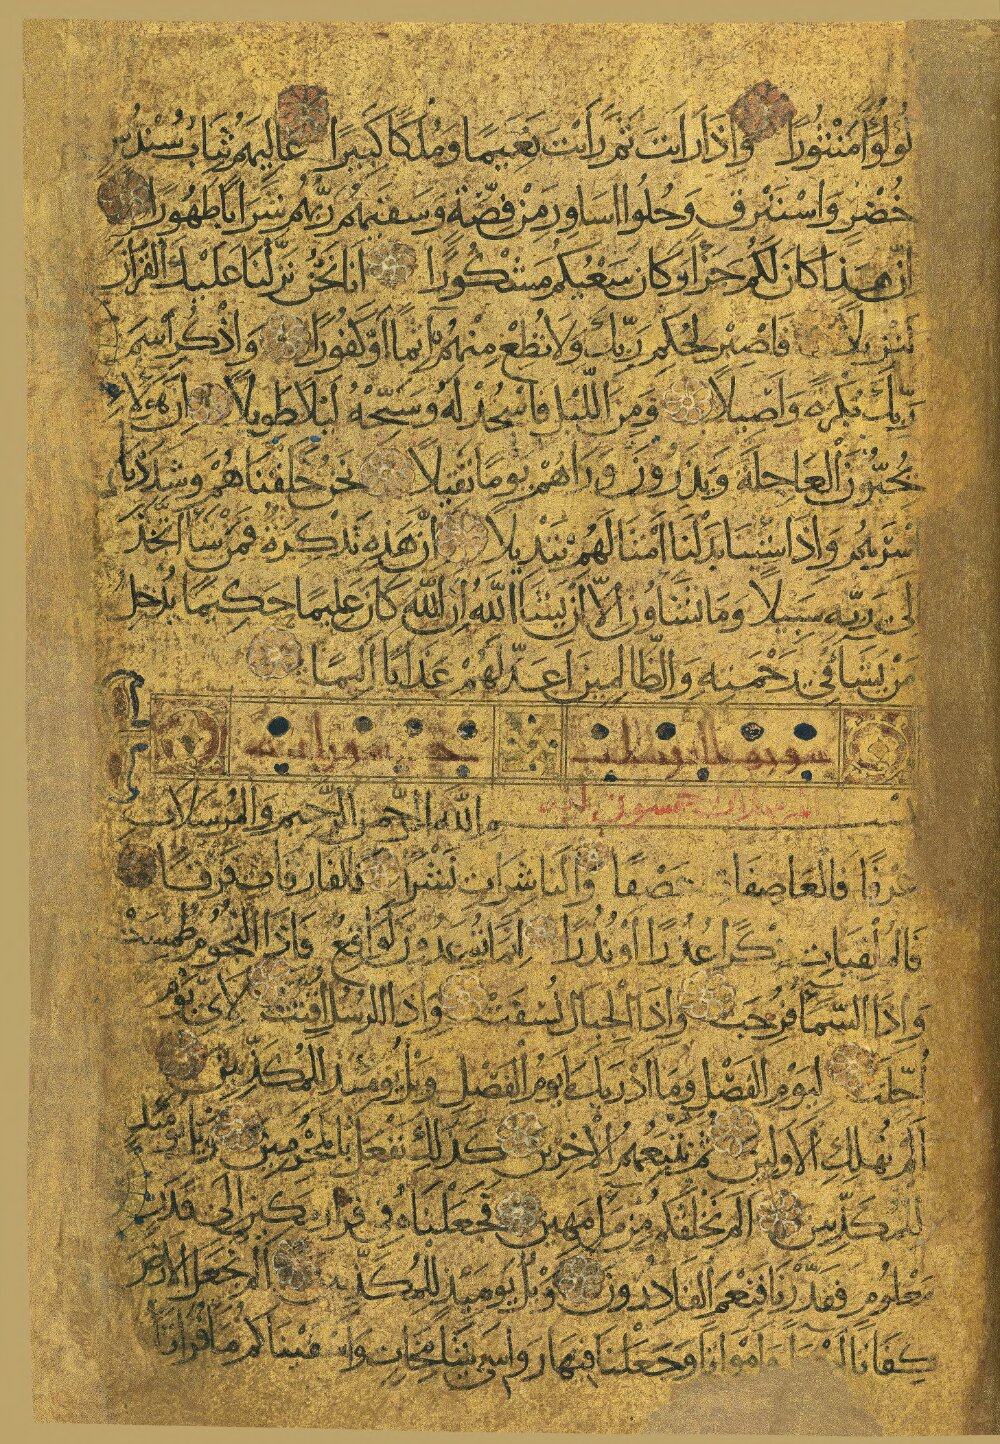 لُؤْلُؤًا مَنْثُورًا وَاِذَا رَاَيْتَ ثَمَّ رَاَيْتَ نَعِيمًا وَمُلْكًا كَبِيرًا عَالِيَهُمْ ثِيَابُ سُنْدُسٍ
خُضْرٌ وَاِسْتَبْرَقٌ وَحُلُّوا اَسَاوِرَ مِنْ فِضَّةٍ وَسَقٰيهُمْ رَبُّهُمْ شَرَابًا طَهُورًا
اِنَّ هٰذَا كَانَ لَكُمْ جَزَاءً وَكَانَ سَعْيُكُمْ مَشْكُورًا اِنَّا نَحْنُ نَزَّلْنَا عَلَيْكَ الْقُرْاٰنَ
تَنْزِيلًا فَاصْبِرْ لِحُكْمِ رَبِّكَ وَلَا تُطِعْ مِنْهُمْ اٰثِمًا اَوْ كَفُورًا وَاذْكُرِ اسْمَ
رَبِّكَ بُكْرَةً وَاَصِيلًا وَمِنَ اللَّيْلِ فَاسْجُدْ لَهُ وَسَبِّحْهُ لَيْلًا طَوِيلًا اِنَّ هٰؤُلَاءِ
يُحِبُّونَ الْعَاجِلَةَ وَيَذَرُونَ وَرَاءَهُمْ يَوْمًا ثَقِيلًا نَحْنُ خَلَقْنَاهُمْ وَشَدَدْنَا
اَسْرَهُمْ وَاِذَا شِئْنَا بَدَّلْنَا اَمْثَالَهُمْ تَبْدِيلًا اِنَّ هٰذِهِ تَذْكِرَةٌ فَمَنْ شَاءَ اتَّخَذَ
اِلٰى رَبِّهِ سَبِيلًا وَمَا تَشَاؤُنَ اِلَّا اَنْ يَشَاءَ اللّٰهُ اِنَّ اللّٰهَ كَانَ عَلِيمًا حَكِيمًا يُدْخِلُ
مَنْ يَشَاءُ فِي رَحْمَتِهِ وَالظَّالِمِينَ اَعَدَّ لَهُمْ عَذَابًا اَلِيمًا
سورة المرسلت
بسم اللّٰهِ الرَّحْمٰنِ الرَّحِيمِ وَالْمُرْسَلَاتِ
عُرْفًا فَالْعَاصِفَاتِ عَصْفًا وَالنَّاشِرَاتِ نَشْرًا فَالْفَارِقَاتِ فَرْقًا
فَالْمُلْقِيَاتِ ذِكْرًا عُذْرًا اَوْ نُذْرًا اِنَّمَا تُوعَدُونَ لَوَاقِعٌ فَاِذَا النُّجُومُ طُمِسَتْ
وَاِذَا السَّمَاءُ فُرِجَتْ وَاِذَا الْجِبَالُ نُسِفَتْ وَاِذَا الرُّسُلُ اُقِّتَتْ لِاَيِّ يَوْمٍ
اُجِّلَتْ لِيَوْمِ الْفَصْلِ وَمَا اَدْرٰيكَ مَا يَوْمُ الْفَصْلِ وَيْلٌ يَوْمَئِذٍ لِلْمُكَذِّبِينَ
اَلَمْ نُهْلِكِ الْاَوَّلِينَ ثُمَّ نُتْبِعُهُمُ الْاٰخِرِينَ كَذٰلِكَ نَفْعَلُ بِالْمُجْرِمِينَ وَيْلٌ يَوْمَئِذٍ
لِلْمُكَذِّبِينَ اَلَمْ نَخْلُقْكُمْ مِنْ مَاءٍ مَهِينٍ فَجَعَلْنَاهُ فِي قَرَارٍ مَكِينٍ اِلٰى قَدَرٍ
مَعْلُومٍ فَقَدَّرْنَا فَنِعْمَ الْقَادِرُونَ وَيْلٌ يَوْمَئِذٍ لِلْمُكَذِّبِينَ اَلَمْ نَجْعَلِ الْاَرْضَ
كِفَاتًا اَحْيَاءً وَاَمْوَاتًا وَجَعَلْنَا فِيهَا رَوَاسِيَ شَامِخَاتٍ وَاَسْقَيْنَاكُمْ مَاءً فُرَاتًا